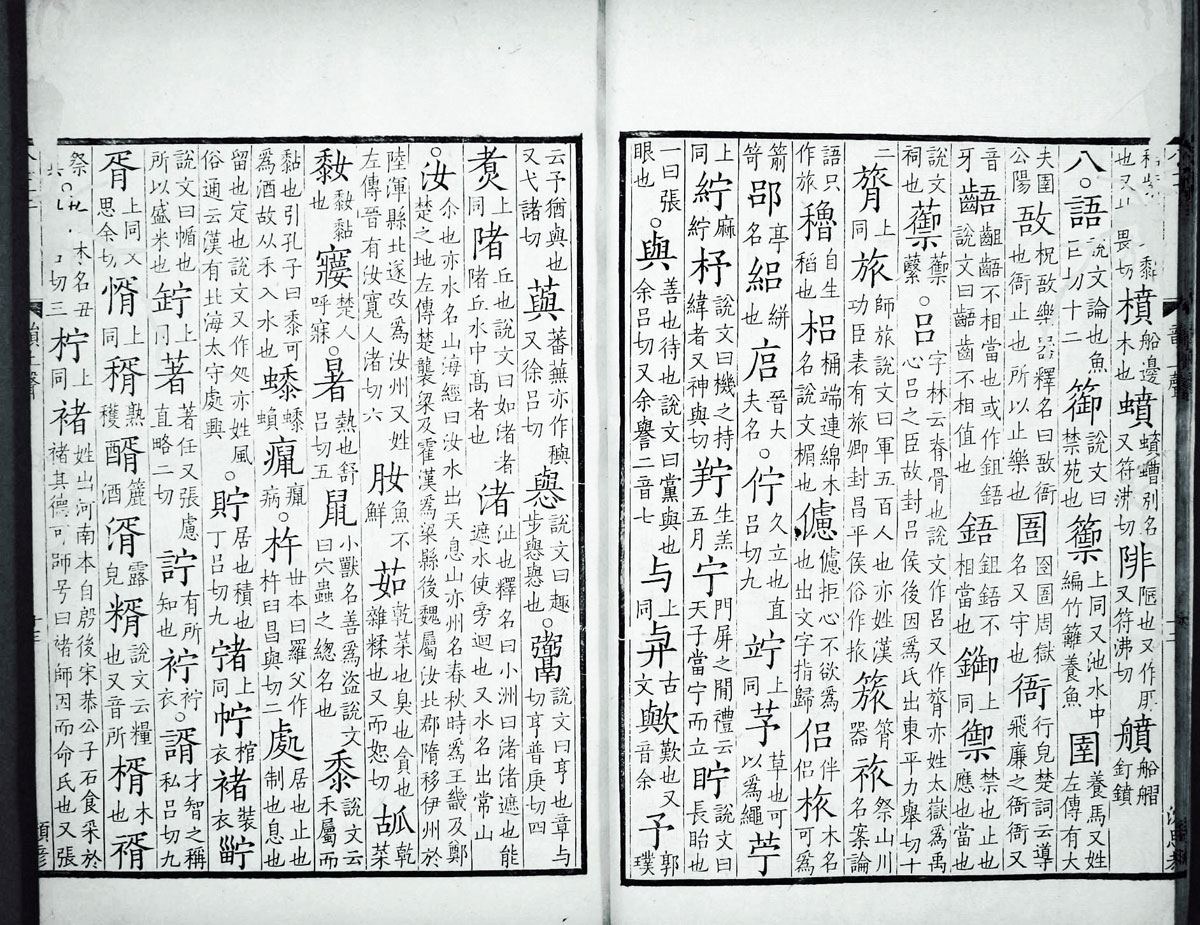 橨船邊木也蟦蟦螬別名又符沸切陫陋也又作厞又符沸切鐼船䑺釘鐼
八。語説文論也魚巨切十二篽説文曰禁苑也籞上同又池水中編竹籬養魚圉養馬又姓左傳有大
夫圉公陽敔柷敔樂器釋名曰敔衙也衙止也所以止樂也圄囹圄周獄名又守也衙行皃楚詞云導飛廉之衙衙又
音牙齬齟齬不相當也或作鉏鋙説文曰齬齒不相值也鋙鉏鋙不相當也䥏上同禦禁也止也應也當也
説文祠也蘌。呂字林云脊骨也説文作呂又作膂亦姓太嶽爲禹心呂之臣故封呂侯後因爲氏出東平力舉切十
二膂上同旅師旅説文曰軍五百人也亦姓漢功臣表有旅卿封昌平侯俗作挔筲器祣祭山川名案論
語只作旅穭自生稻也梠桶端連綿木名說文楣也儢儢拒心不欲爲也出文字指歸侶伴侶木名可爲
箭笴郘亭名絽絣絽晉大夫名。佇久立也直呂切九竚上同芧草也可以爲繩苧
上同紵麻紵杼説文曰機之持緯者又神與切羜生五月羔宁門屏之閒禮云天子當宁而立眝説文曰長眙也
一曰張眼也。與善也待也説文曰黨與也余呂切又余譽二音七与上同古文歟歎也又音余予郭璞
云予猶與也又弋諸切藇蕃蕪亦作稢又徐呂切㦛説文曰趣步㦛㦛也。䰞説文曰亨也章与切亨普庚切四
煑上同陼丘也説文曰如渚者陼丘水中高者也渚沚也釋名曰小洲曰渚渚遮也能遮水使旁迴也又水名出常山
。汝尒也亦水名山海經曰汝水出天息山亦州名春秋時爲王畿及鄭楚之地左傳楚襲梁及霍漢爲梁縣後魏屬汝北郡隋移伊州於
陸渾縣北遂改爲汝州又姓左傳晉有汝寬人渚切六肗魚不鮮茹乾菜也臭也貪也雜糅也又而恕切乾菜
䵑黏也楚人呼寐。暑熱也舒呂切五鼠小獸名善爲盜説文曰穴蟲之總名也黍説文云禾屬而
黏也引孔子曰黍可爲酒故从禾入水也蟍蟍蝜癙癙病。杵世本曰羅父作杵臼昌與切二處居也止也制也息也
留也定也説文又作処亦姓風俗通云漢有北海太守處興。貯居也積也丁呂切九上同棺衣褚裝衣
説文曰㡒也所以盛米也上同著著任又張慮直略二切詝有所知也衣。諝才智之稱私吕切九
胥上同又思余切惰上同稰熟穫醑簏酒湑露皃糈説文云糧也又音所楈木也
柠上同褚姓出河南本自殷後宋恭公子石食采於褚其德可師号曰褚師因而命氏也又張